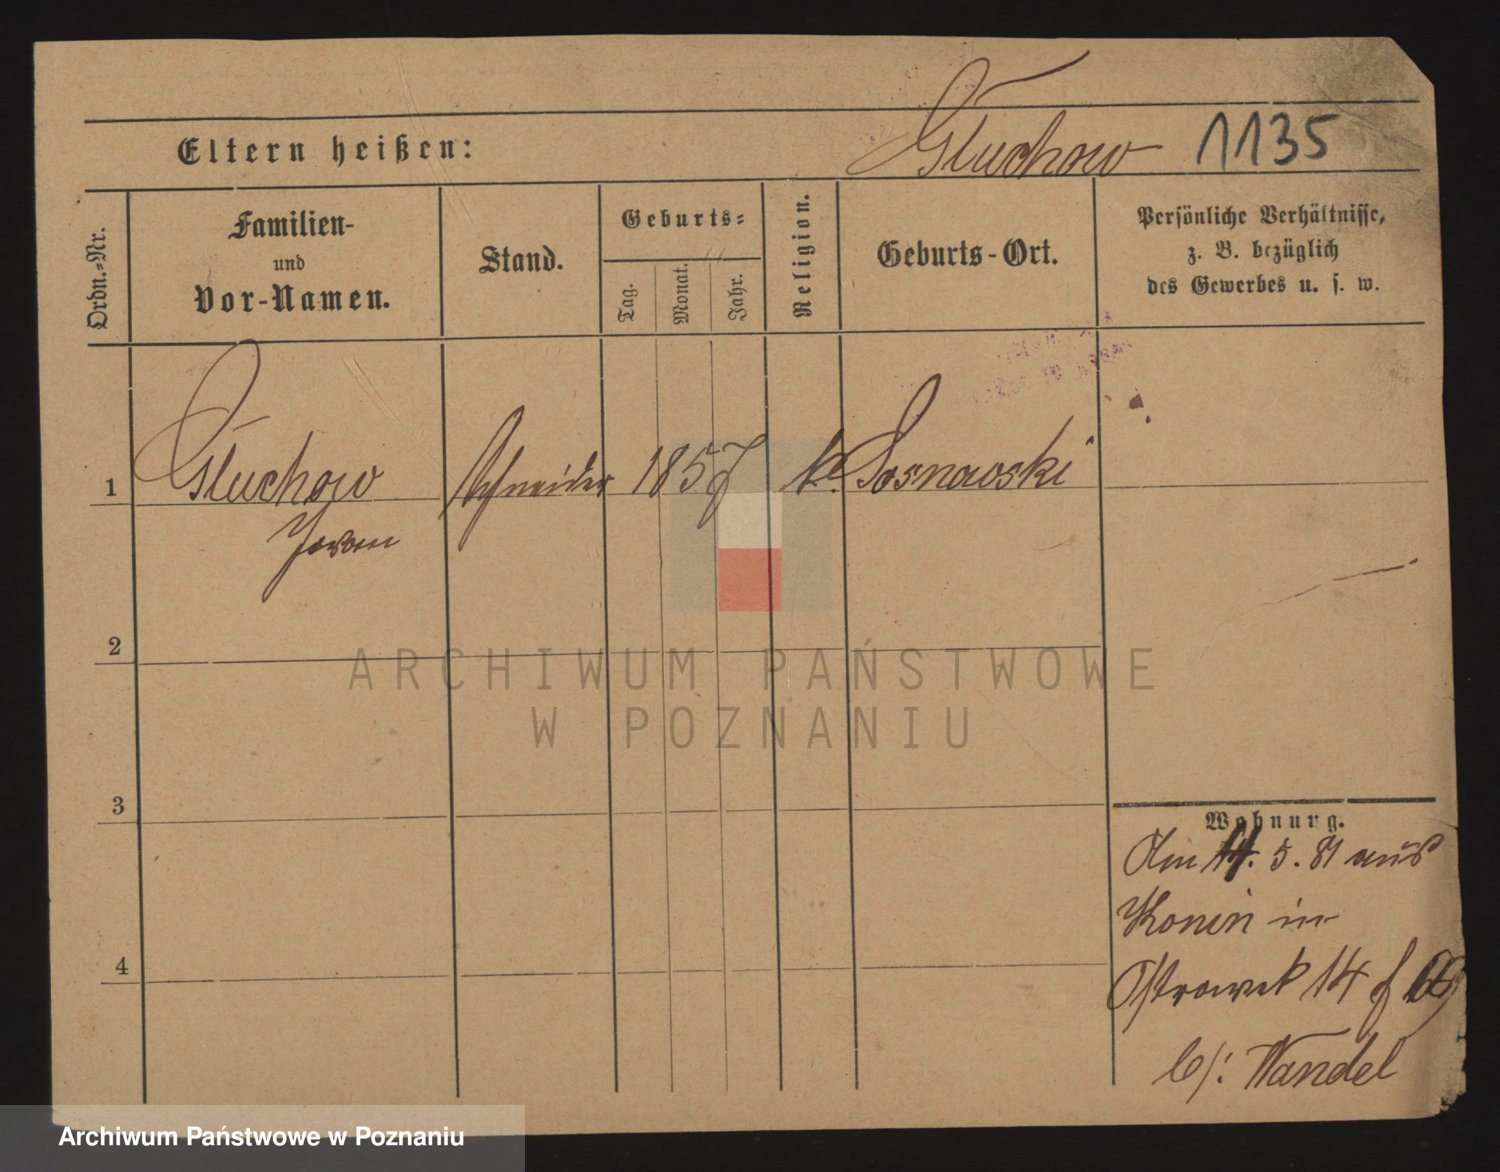 Głuchow 1135
Eltern heißen:
Ordn.-Nr.
Familien-
und
Vor-Namen.
Stand.
Geburts-
Tag.
Monat.
Jahr.
Religion.
Geburts-Ort.
Persönliche Verhältnisse,
z. B. bezüglich
des Gewerbes u. s. w.
1 Głuchow Schneider 1857 k. Sosnowski
2
3
4
Wohnung.
Am 14. 5. 81 aus
Konin in
Ostrowek 14
b/: Wandel
ARCHIWUM PAŃSTWOWE
W POZNANIU
Archiwum Państwowe w Poznaniu